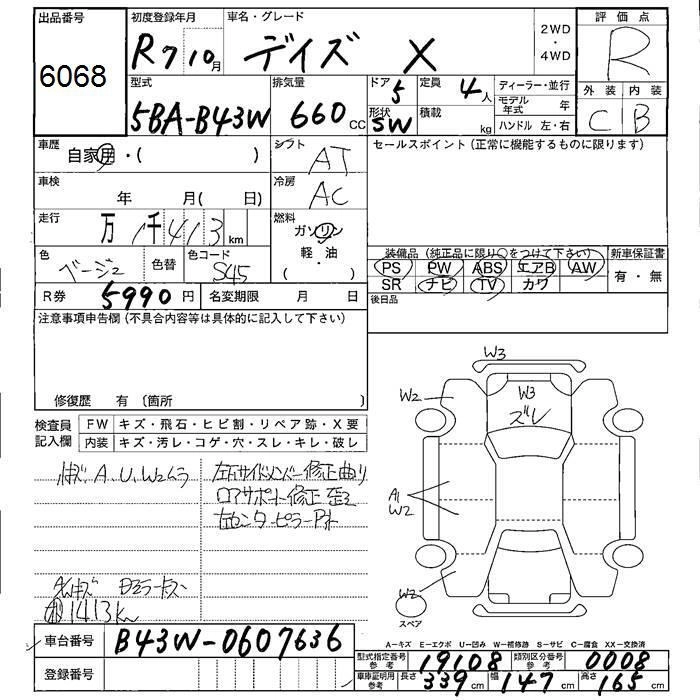 出品番号
6068
初度登録年月
R7 10月
車名・グレード
デイズ X
2WD
・
4WD
評価点
R
外装 内装
C B
型式
5BA-B43W
排気量
660 cc
ドア
5
形状
5W
定員
4人
積載
kg
ディーラー・並行
モデル年式 年
ハンドル 左・右
車歴
自家用・( )
車検
年 月( 日)
走行
万 1千413 km
色
ベージュ
色替
色コード
S45
R券 5990円
名変期限 月 日
シフト
AT
冷房
AC
燃料
ガソリン
軽・油
( )
セールスポイント(正常に機能するものに限ります)
装備品(純正品に限り○をつけて下さい)
PS PW ABS エアB AW
SR ナビ TV カワ
新車保証書
有・無
後日品
注意事項申告欄(不具合内容等は具体的に記入して下さい)
修復歴 有 〔箇所 〕
検査員記入欄
FW キズ・飛石・ヒビ割・リペア跡・X要
内装 キズ・汚レ・コゲ・穴・スレ・キレ・破レ
A.U.W2ムラ
左右サイドメンバー修正曲り
ロアサポート修正 歪ミ
左センターピラーアト
1413km
W3
W3
ズレ
W2
A1
W2
W2
スペア
A-キズ E-エクボ U-凹み W-補修跡 S-サビ C-腐食 XX-交換済
車台番号 B43W-0607636
登録番号
型式指定番号 参考 19108
類別区分番号 参考 0008
車庫証明用 参考 長さ 339 幅 147 高さ 165 cm